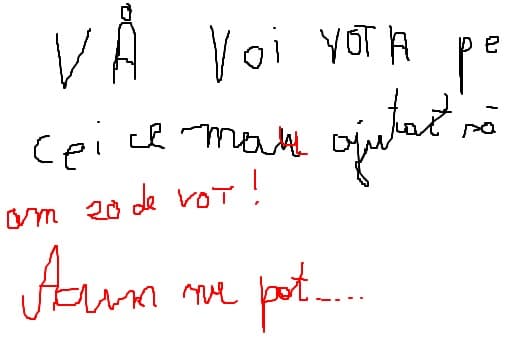 VÅ voi VOTA pe
cei ce m-au ajutat să
am 20 de VOT!
Acum nu pot.....